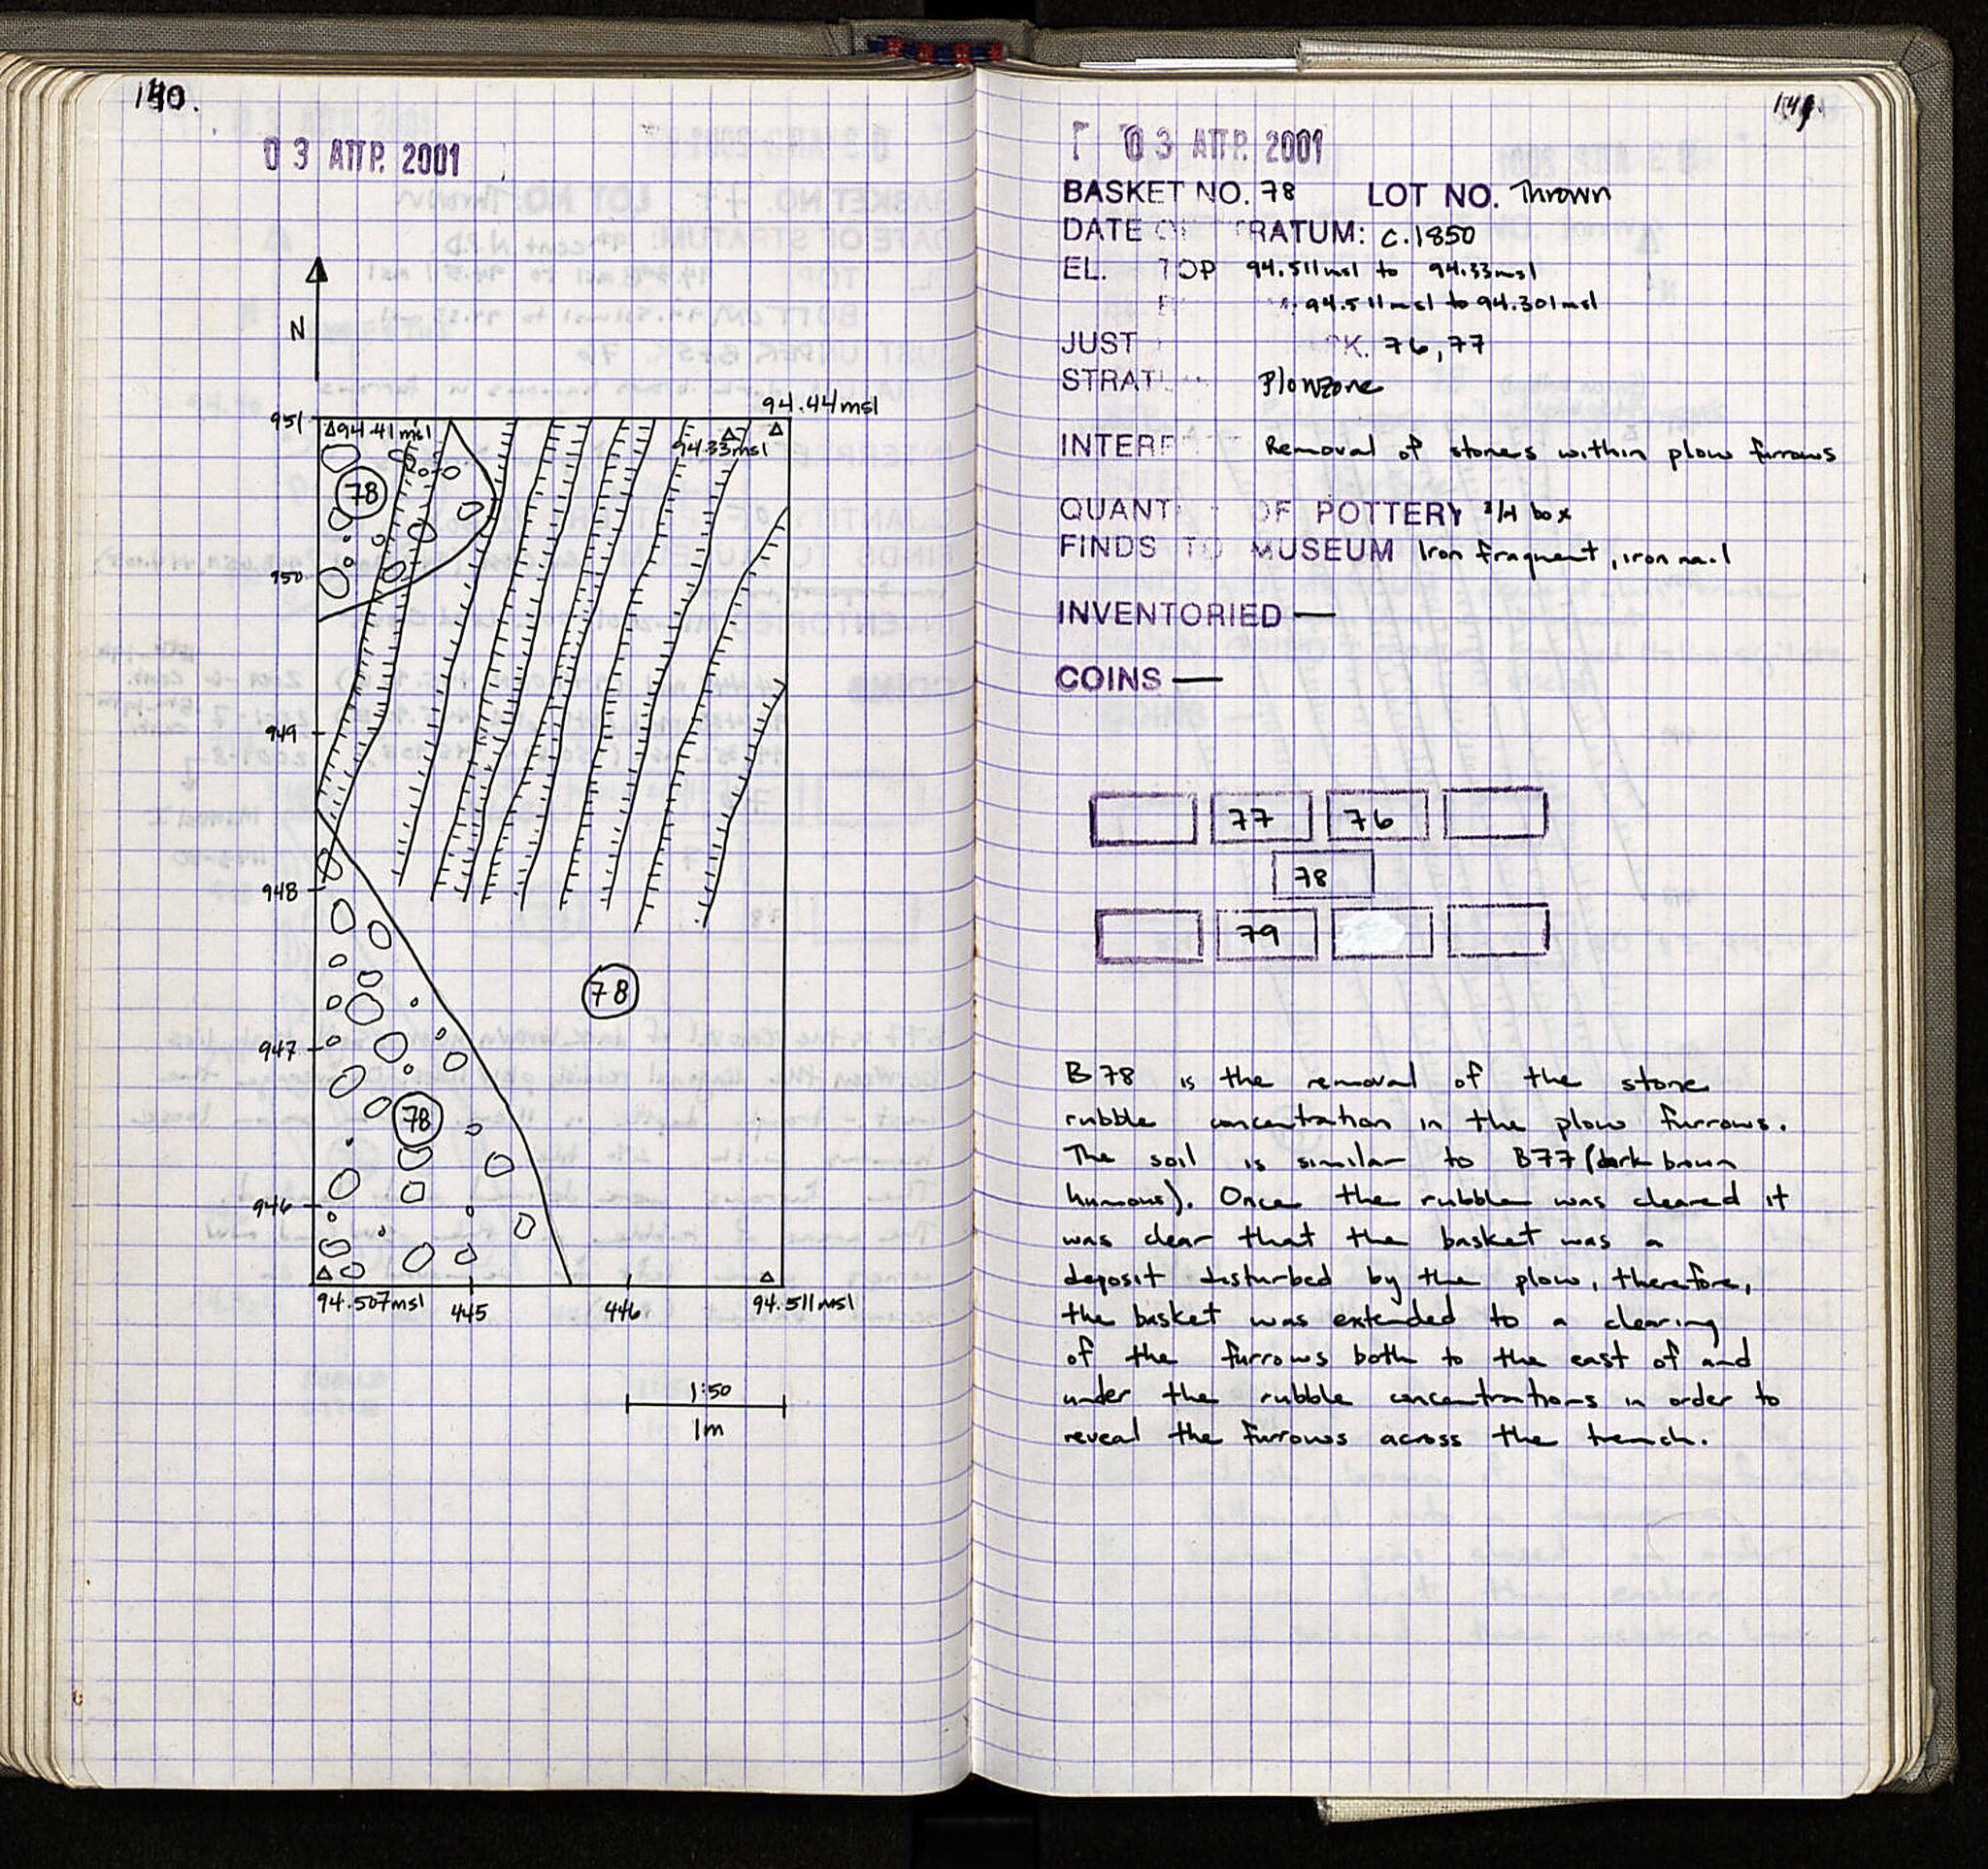 140.
03 ΑΠΡ. 2001
N
94.44msl
951
94.41msl
94.33msl
78
950
949
948
78
947
78
946
94.507msl 445 446 94.511msl
1:50
1m
141.
03 ΑΠΡ. 2001
BASKET NO. 78 LOT NO. Thrown
DATE OF STRATUM: c.1850
EL. TOP 94.511msl to 94.33msl
94.511msl to 94.301msl
JUST 76, 77
STRAT Plowzone
INTERP Removal of stones within plow furrows
QUANT OF POTTERY 3/4 box
FINDS TO MUSEUM Iron fragment, iron nail
INVENTORIED —
COINS —
77 76
78
79
B78 is the removal of the stone
rubble concentration in the plow furrows.
The soil is similar to B77 (dark brown
humous). Once the rubble was cleared it
was clear that the basket was a
deposit disturbed by the plow, therefore,
the basket was extended to a clearing
of the furrows both to the east of and
under the rubble concentrations in order to
reveal the furrows across the trench.